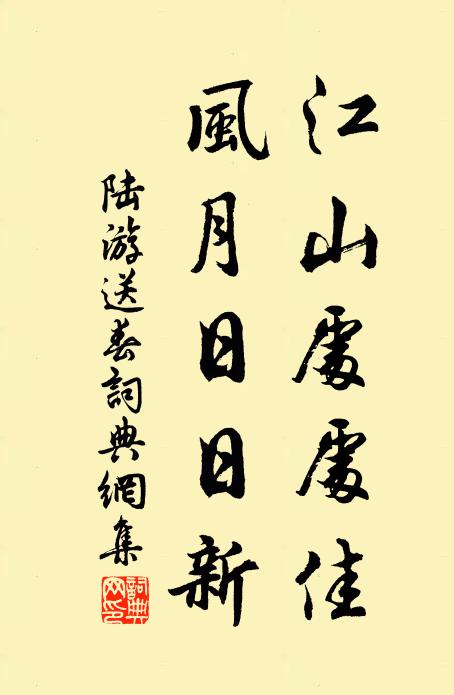 江山處處佳
風月日日新
陆游送春詞典網集
詞典网印